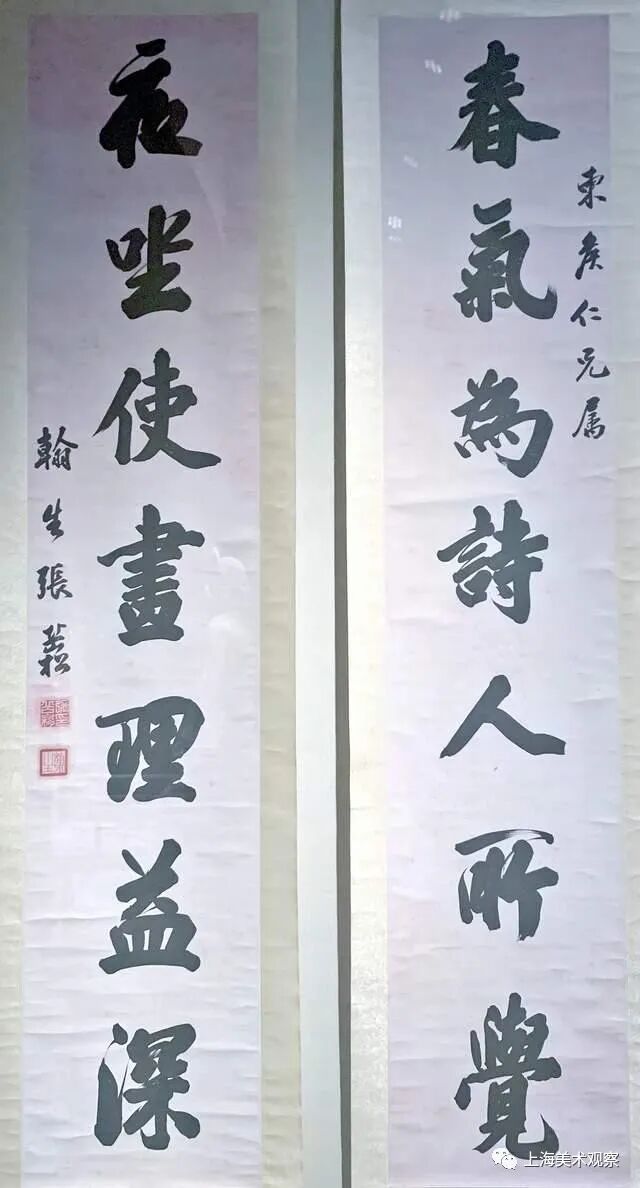 春氣為詩人所覺
東侯仁兄属
夜坐使畫理益深
翰生張
上海美术观察